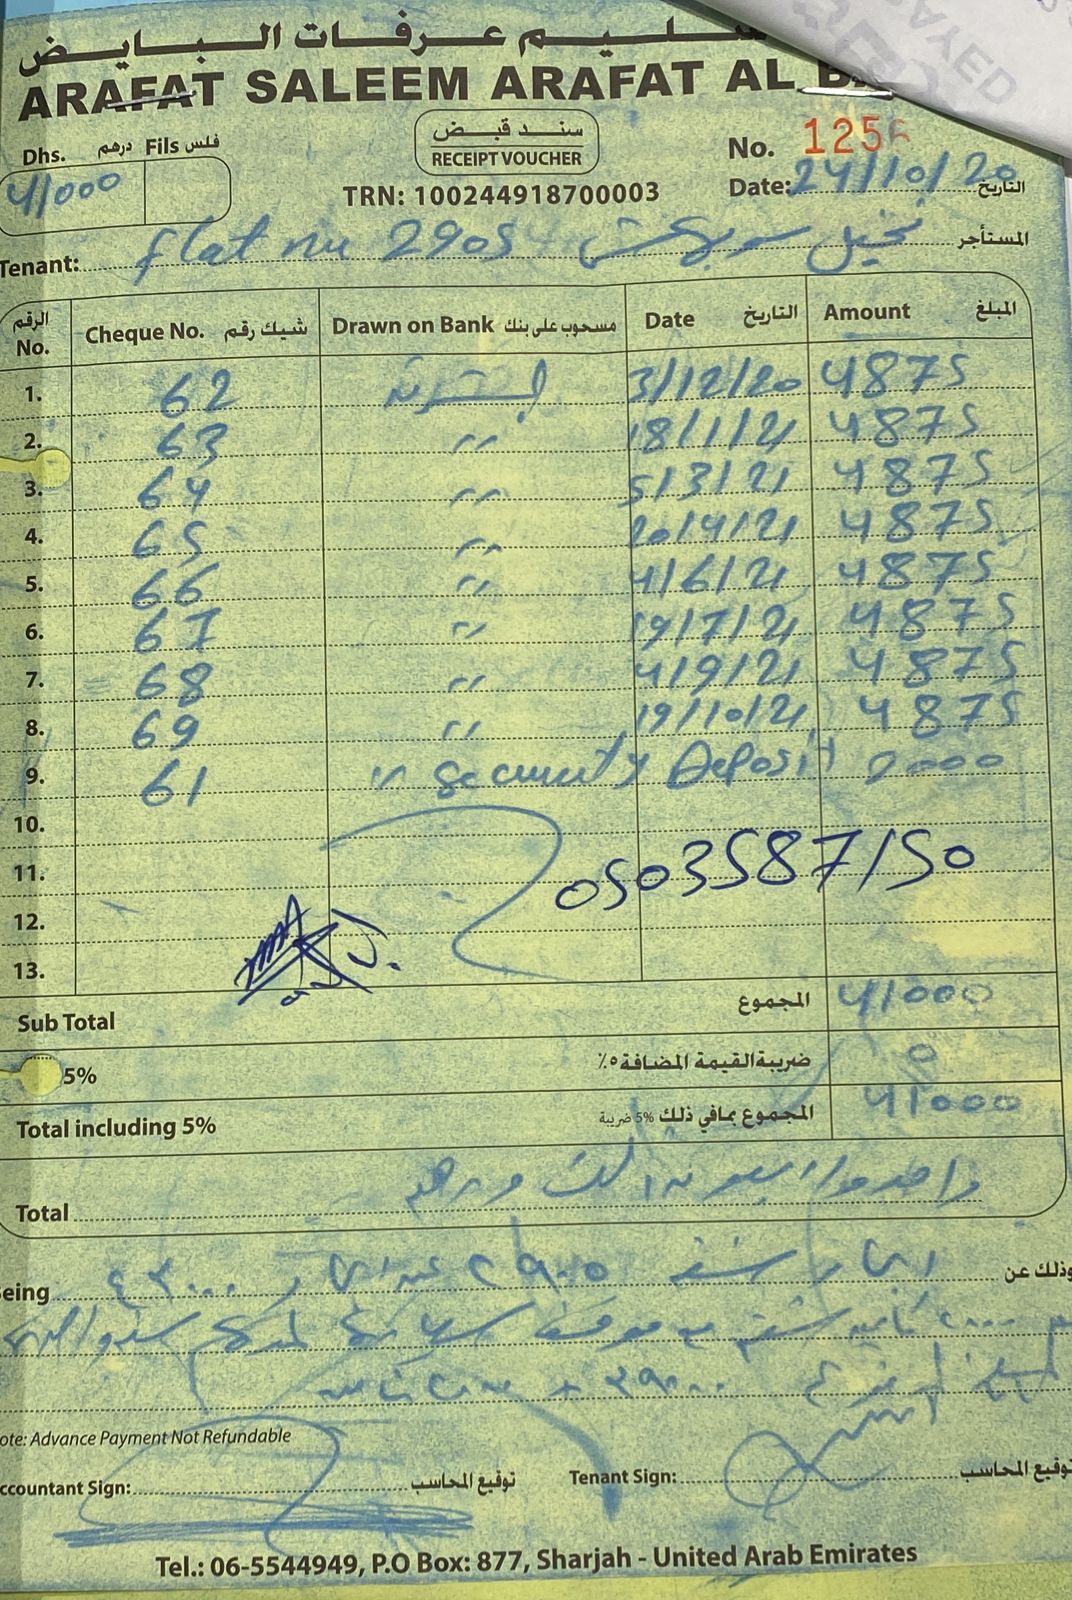 سليم عرفات البايض
ARAFAT SALEEM ARAFAT AL
Dhs. درهم Fils فلس
سند قبض
RECEIPT VOUCHER
No. 1256
41000
TRN: 100244918700003
Date: 24/10/20 التاريخ
Tenant: flat no 2905 نخيل المستأجر
الرقم No. Cheque No. شيك رقم Drawn on Bank مسحوب على بنك Date التاريخ Amount المبلغ
1. 62 3/12/20 4875
2. 63 " 18/1/21 4875
3. 64 " 5/3/21 4875
4. 65 " 20/4/21 4875
5. 66 " 4/6/21 4875
6. 67 " 19/7/21 4875
7. 68 " 4/9/21 4875
8. 69 " 19/10/21 4875
9. 61 " Security Deposit 2000
10.
11. 0503587150
12.
13.
Sub Total المجموع 41000
5% ضريبة القيمة المضافة ٥٪ 0
Total including 5% المجموع بمافي ذلك 5% ضريبة 41000
Total واحد واربعون الف درهم
eing ايجار شقة ٢٩٠٥ وذلك عن
ote: Advance Payment Not Refundable
ccountant Sign: توقيع المحاسب Tenant Sign: توقيع المحاسب
Tel.: 06-5544949, P.O Box: 877, Sharjah - United Arab Emirates